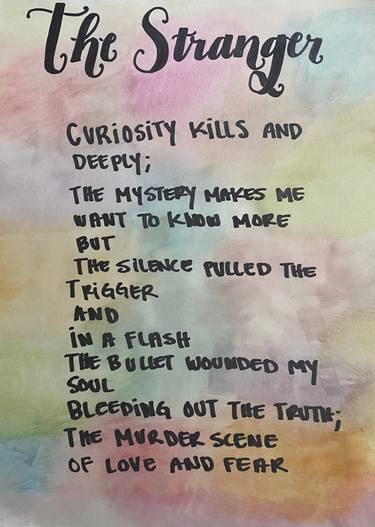 The Stranger
CURIOSITY KILLS AND
DEEPLY;
THE MYSTERY MAKES ME
WANT TO KNOW MORE
BUT
THE SILENCE PULLED THE
TRIGGER
AND
IN A FLASH
THE BULLET WOUNDED MY
SOUL
BLEEDING OUT THE TRUTH;
THE MURDER SCENE
OF LOVE AND FEAR